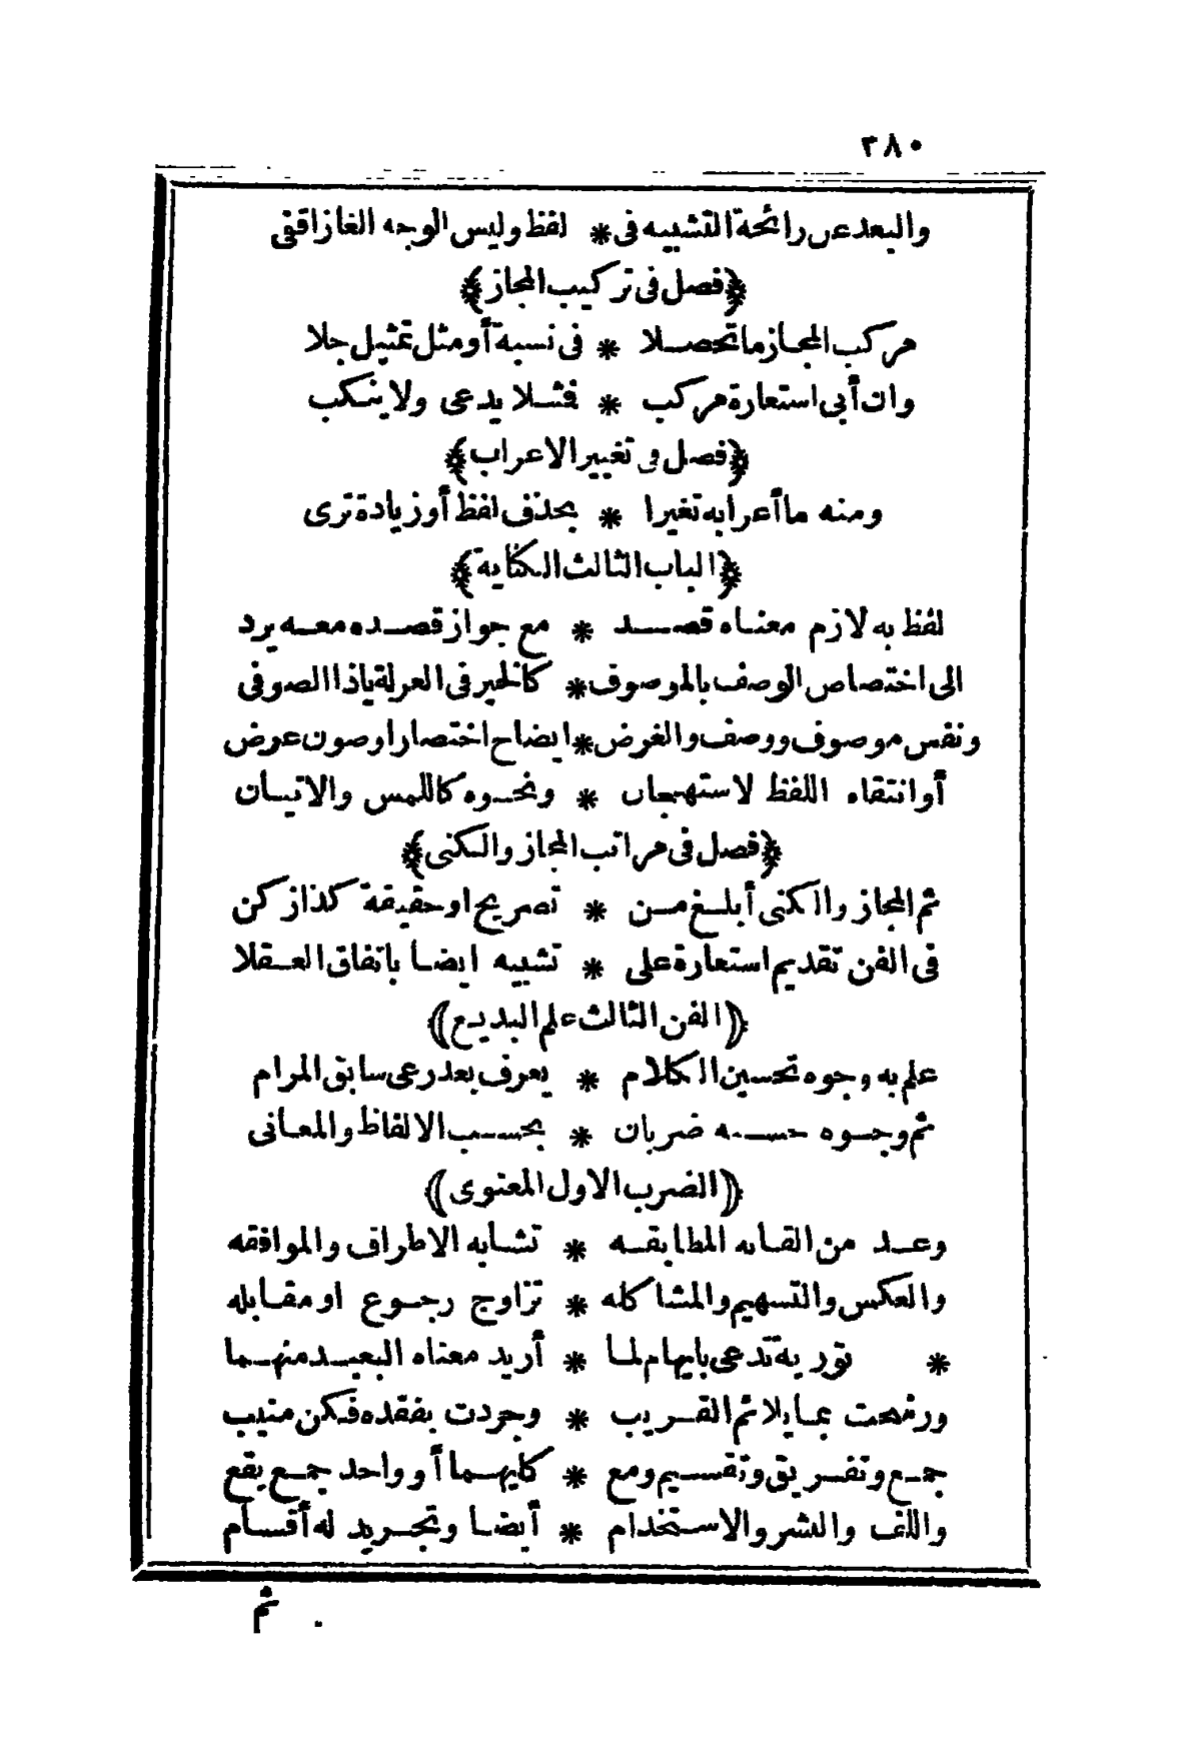 ٣٨٠
والبعد عن رائحة التشبيه فى * لفظ وليس الوجه الغازا قفى
﴿فصل فى تركيب المجاز﴾
مركب المجاز ما تحصـلا * فى نسبة أو مثل تمثيل جلا
وان أبى استعارة مركب * فثـلا يدعى ولا ينـكب
﴿فصل فى تغيير الاعراب﴾
ومنه ما أعرابه تغيرا * بحذف لفظ أو زيادة ترى
﴿الباب الثالث الكناية﴾
لفظ به لازم معنـاه قصـد * مع جواز قصـده معـه يرد
الى اختصاص الوصف بالموصوف * كالخير فى العزلة ياذا الصوفى
ونفس موصوف ووصف والغرض * ايضاح اختصار اوصون عرض
أو انتقاء اللفظ لاستهجان * ونحـوه كاللمس والاتيـان
﴿فصل فى مراتب المجاز والكنى﴾
ثم المجاز والكنى أبلـغ مـن * تصريح او حقيقة كذا زكن
فى الفن تقديم استعارة على * تشبيه ايضـا باتفاق العـقلا
﴿الفن الثالث علم البديـع﴾
علم به وجوه تحسين الكلام * يعرف بعد رعى سابق المرام
ثم وجـوه حسـنه ضربان * بحسـب الالفاظ والمعـانى
﴿الضرب الاول المعنوى﴾
وعـد من القابه المطابقـه * تشـابه الاطراف والموافقه
والعكس والتسهيم والمشاكله * تزاوج رجـوع او مقـابله
* تورية تدعى بايهام لمـا * أريد معناه البعيـد منهـما
ورشحت بمـا يلائم القـريب * وجردت بفقده فـكن منيب
جمـع وتفـريق وتقسـيم ومع * كليهـما أو واحد جمـع يقع
واللف والنشر والاسـتخدام * أيضـا وتجـريد له أقسـام
ثم